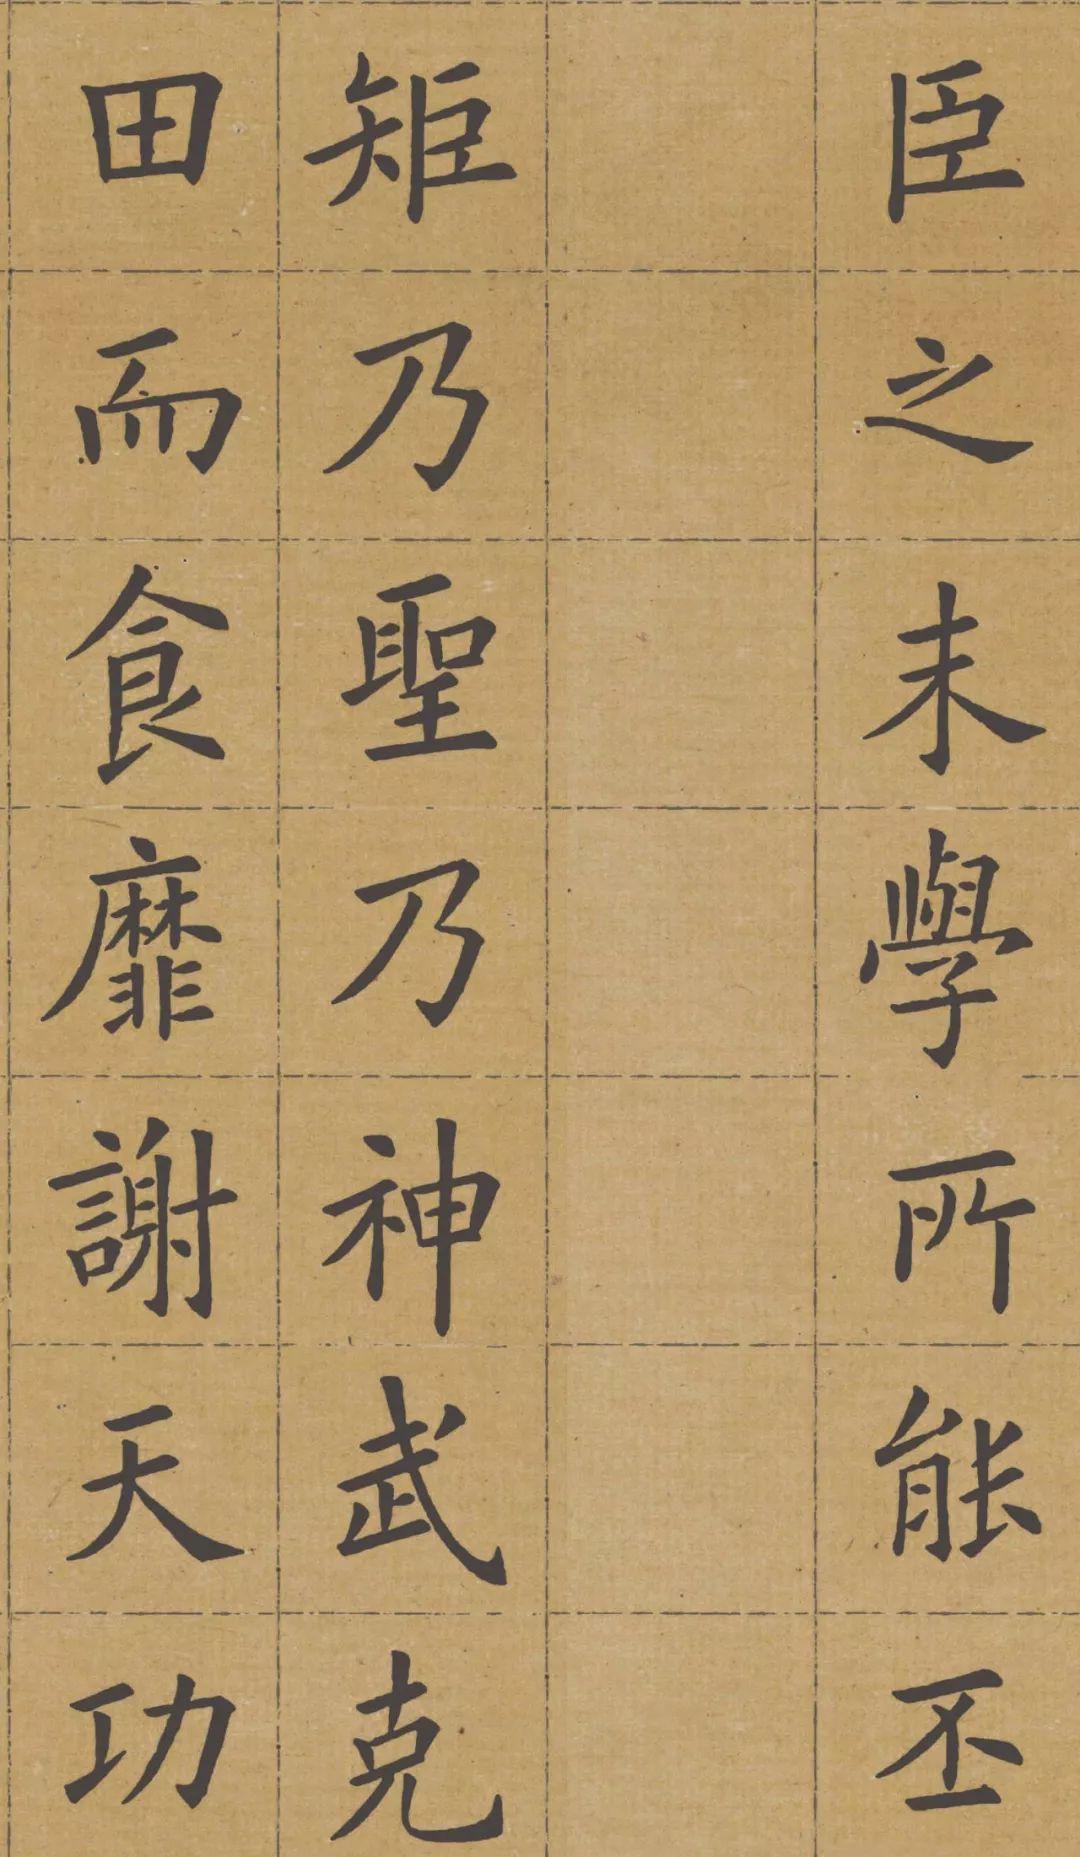 臣之末學所能丕
矩乃聖乃神武克
田而食靡謝天功